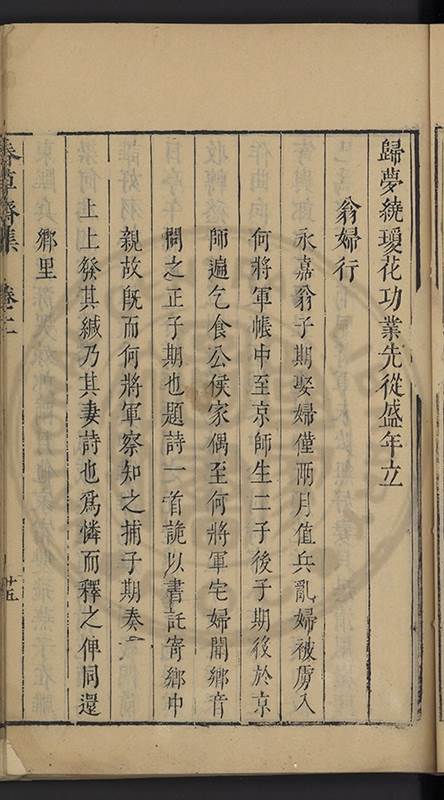 歸夢繞瓊花功業先從盛年立
翁婦行
永嘉翁子期娶婦僅兩月值兵亂婦被虜入
何將軍帳中至京師生二子後子期後於京
師遍乞食公侯家偶至何將軍宅婦聞鄉音
問之正子期也題詩一首詭以書託寄鄉中
親故旣而何將軍察知之捕子期奏
上上發其緘乃其妻詩也爲憐而釋之俾同還
鄉里
春草齋集 卷二